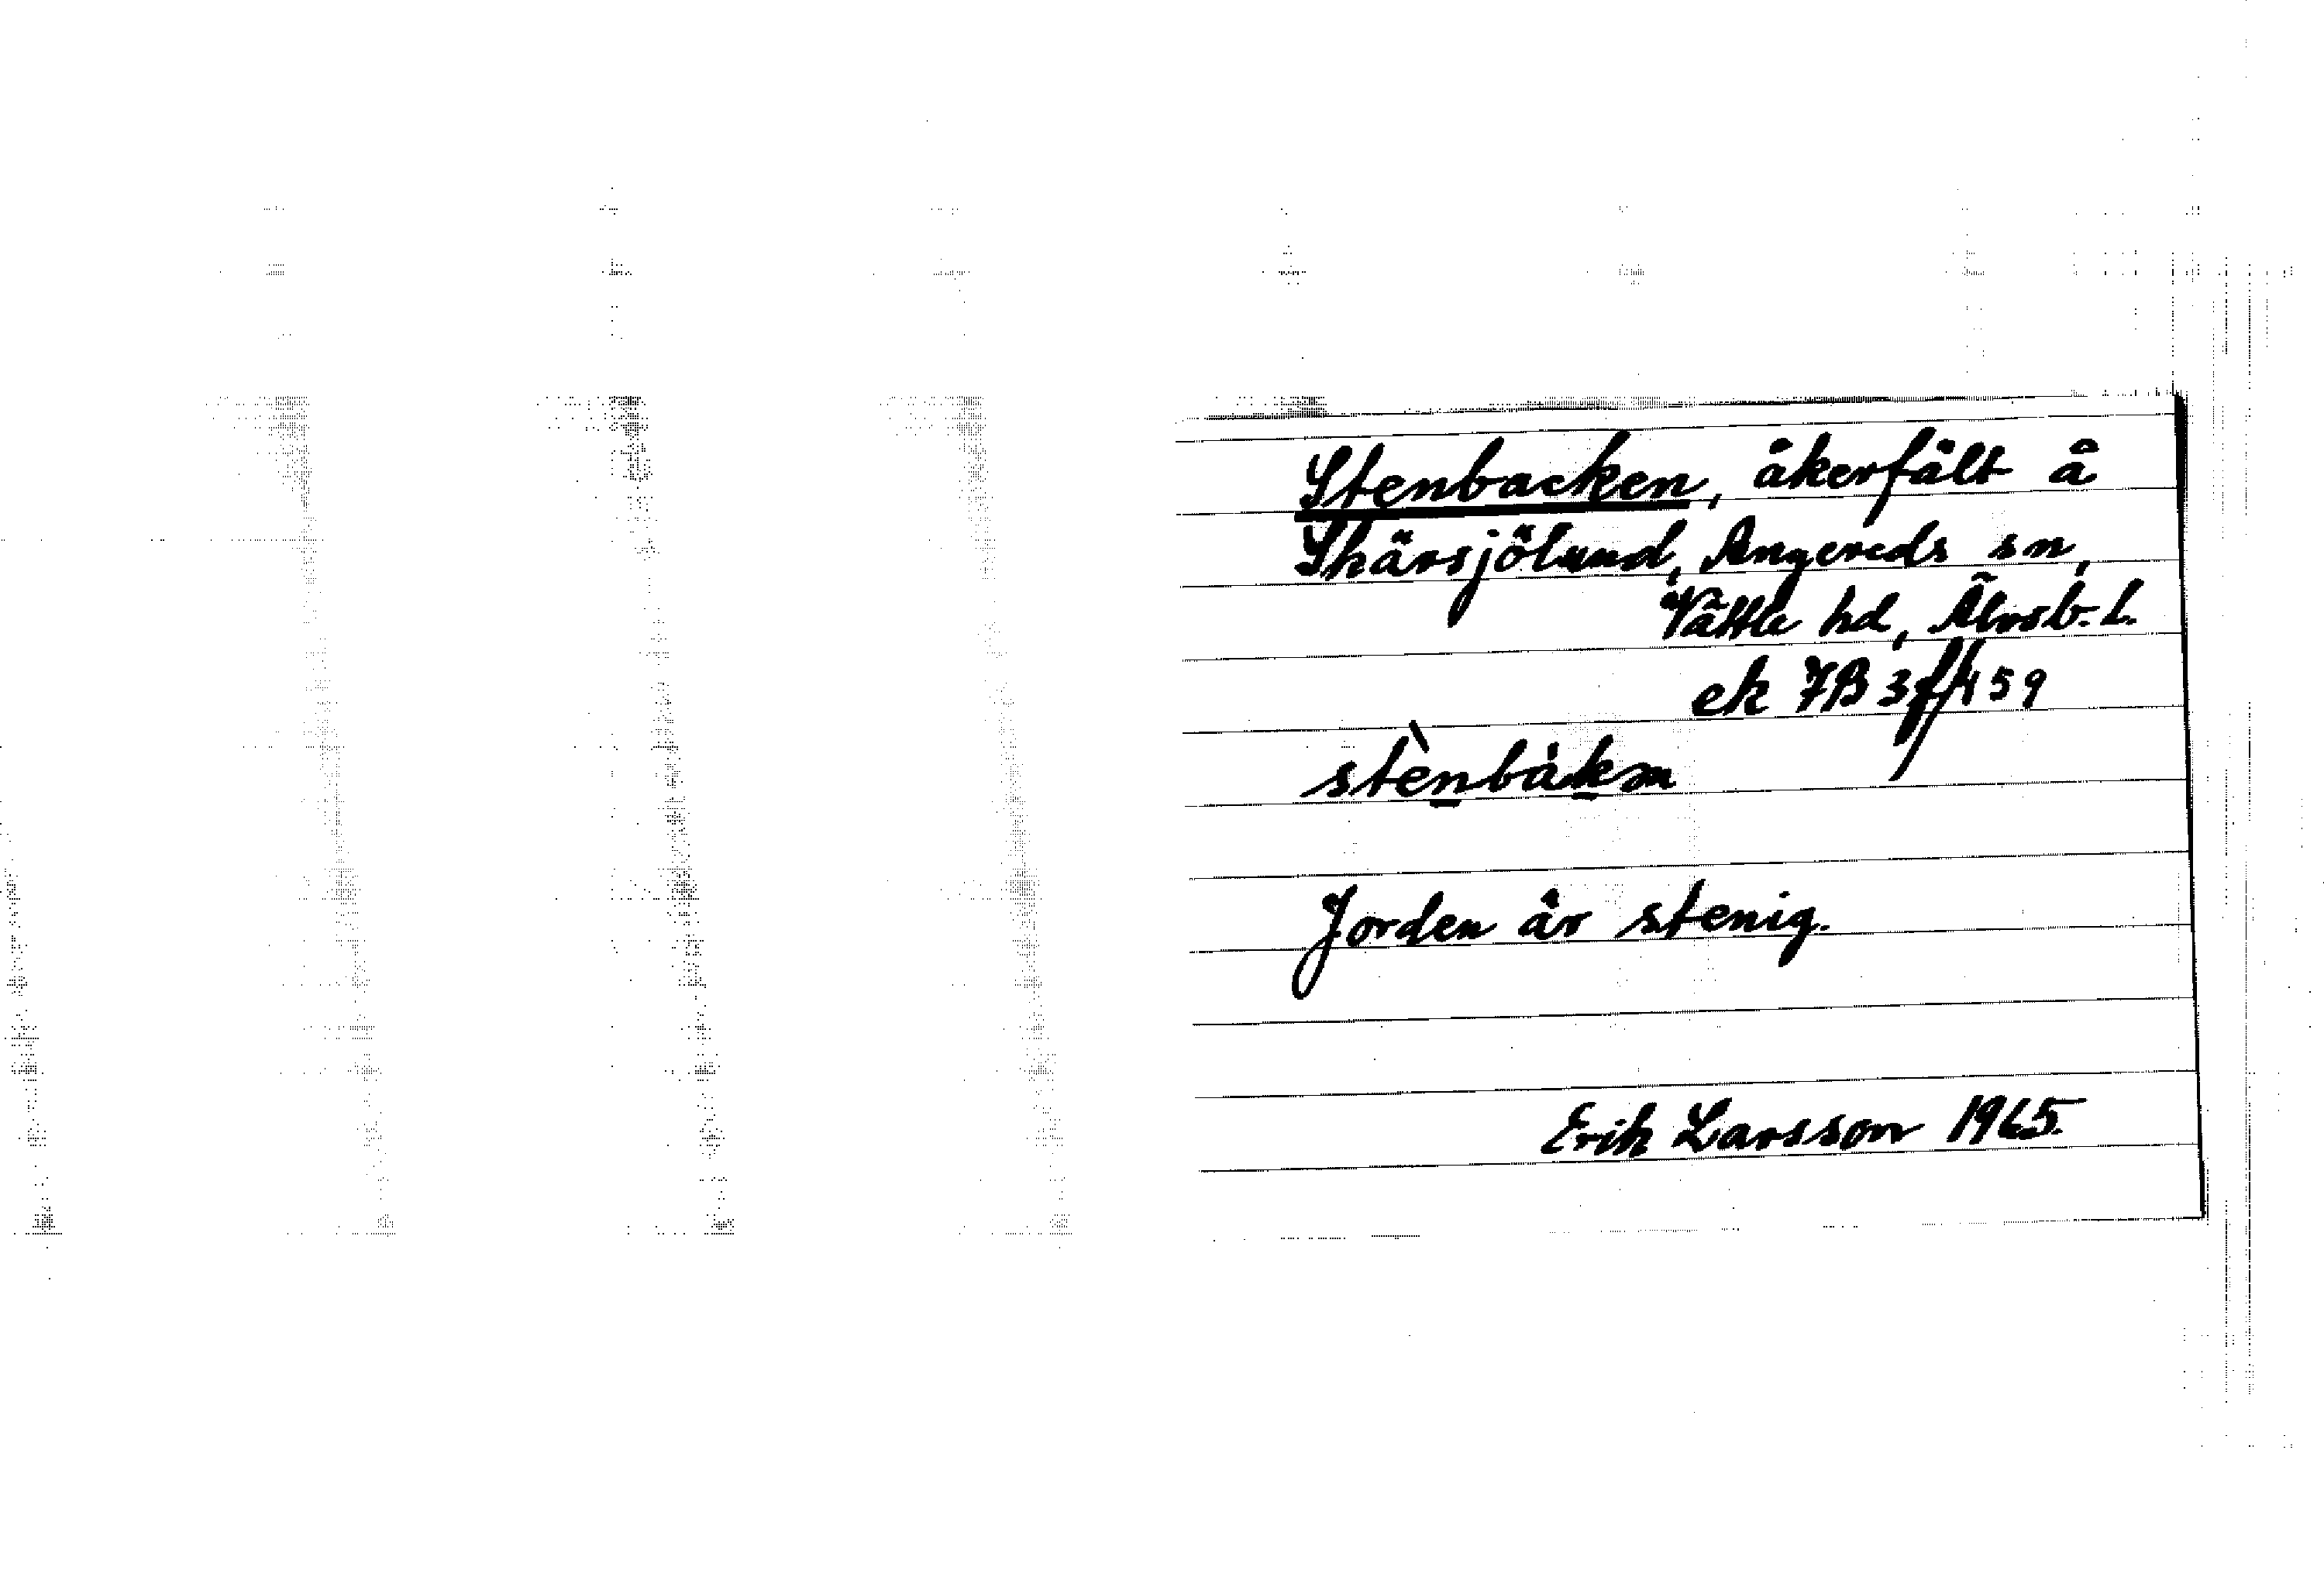 Stenbacken, åkerfält å
Skärsjölund, Angereds sn,
Vättle hd, Älvsb. L.
ek 7B 3f/459
stènbàkən
Jorden är stenig.
Erik Larsson 1965.